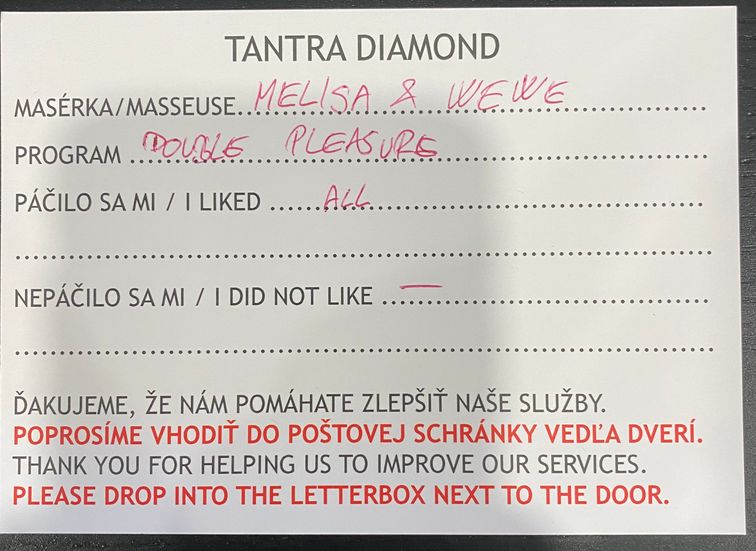 TANTRA DIAMOND
MASÉRKA/MASSEUSE...MELISA & WEWE
PROGRAM ...DOUBLE PLEASURE
PÁČILO SA MI / I LIKED ...ALL
NEPÁČILO SA MI / I DID NOT LIKE ...—
ĎAKUJEME, ŽE NÁM POMÁHATE ZLEPŠIŤ NAŠE SLUŽBY.
POPROSÍME VHODIŤ DO POŠTOVEJ SCHRÁNKY VEDĽA DVERÍ.
THANK YOU FOR HELPING US TO IMPROVE OUR SERVICES.
PLEASE DROP INTO THE LETTERBOX NEXT TO THE DOOR.